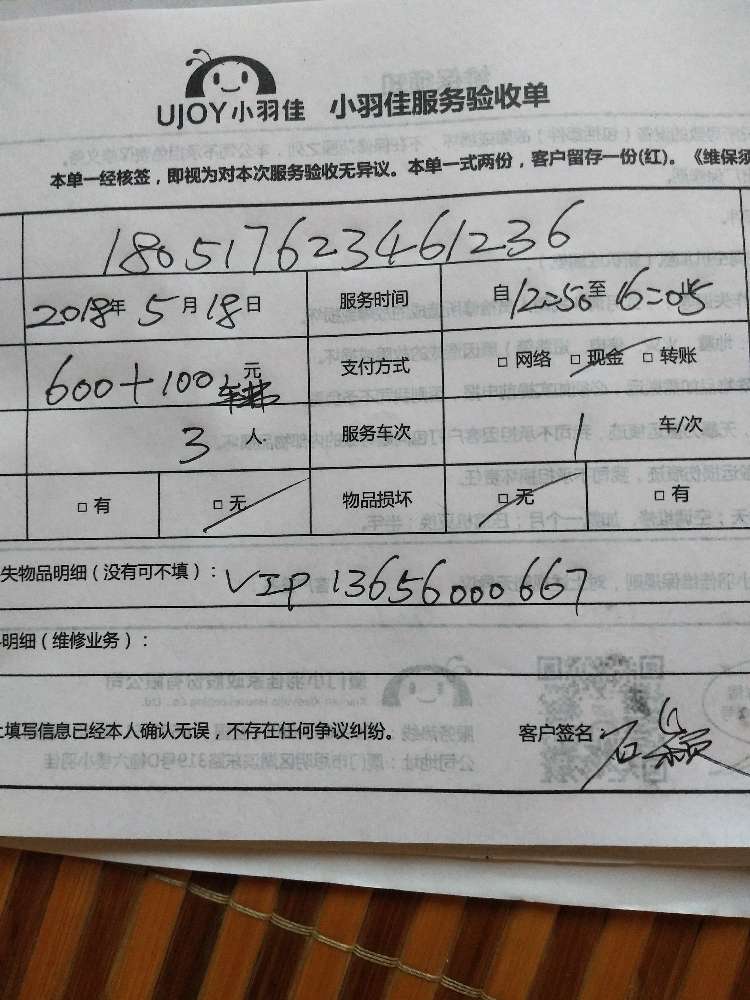 UJOY小羽佳 小羽佳服务验收单
本单一经核签，即视为对本次服务验收无异议。本单一式两份，客户留存一份(红)。《维保须
180517623461236
2018年 5月18日 服务时间 自12:50至16:05
600+100元 车费 支付方式 □ 网络 □ 现金 □ 转账
3人 服务车次 1 车/次
□ 有 □ 无 物品损坏 □ 无 □ 有
失物品明细（没有可不填）： VIP 13656000667
明细（维修业务）：
上填写信息已经本人确认无误，不存在任何争议纠纷。 客户签名